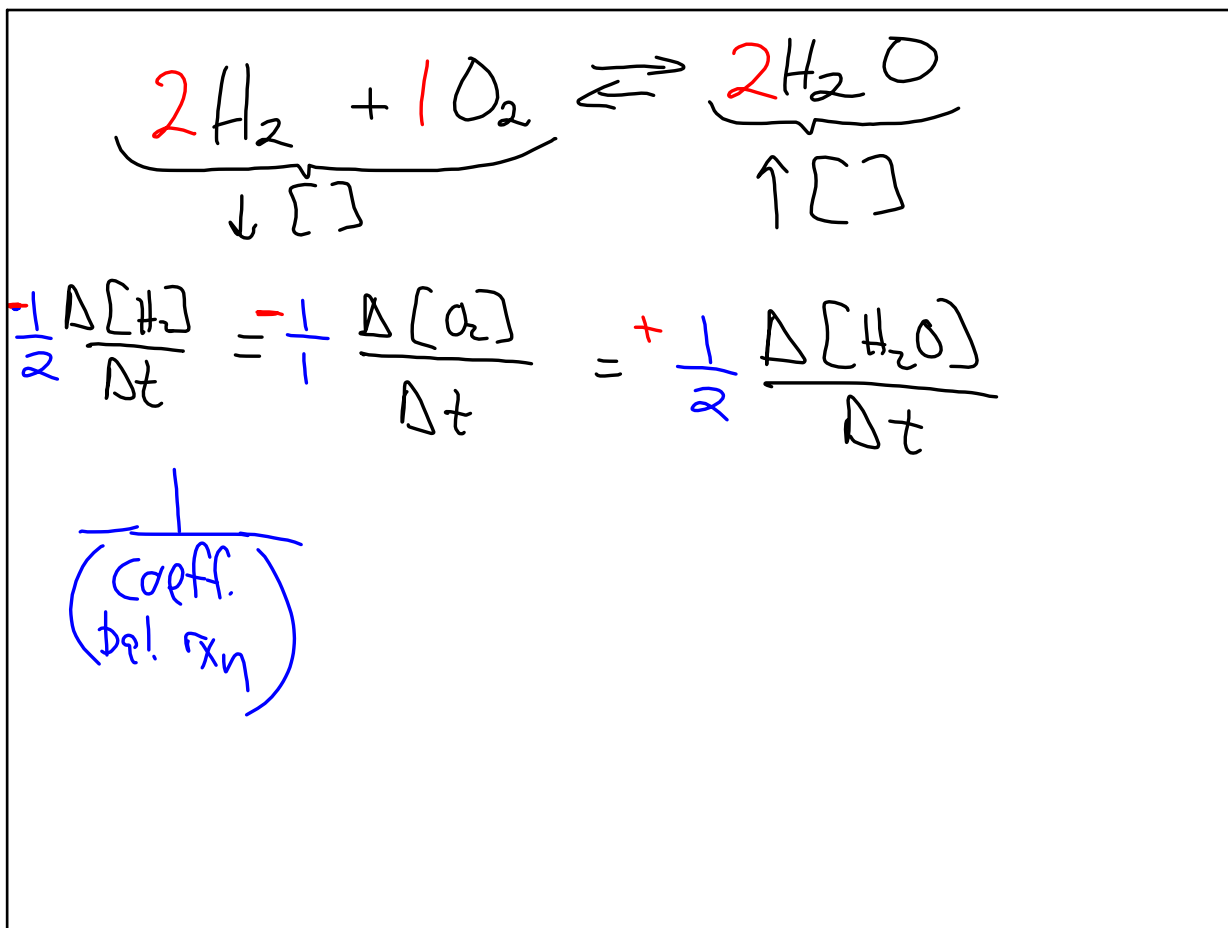 2H₂ + 1O₂ ⇌ 2H₂O
↓ [ ] ↑ [ ]
-1/2 Δ[H₂]/Δt = -1/1 Δ[O₂]/Δt = +1/2 Δ[H₂O]/Δt
1
(coeff.
bal. rxn)